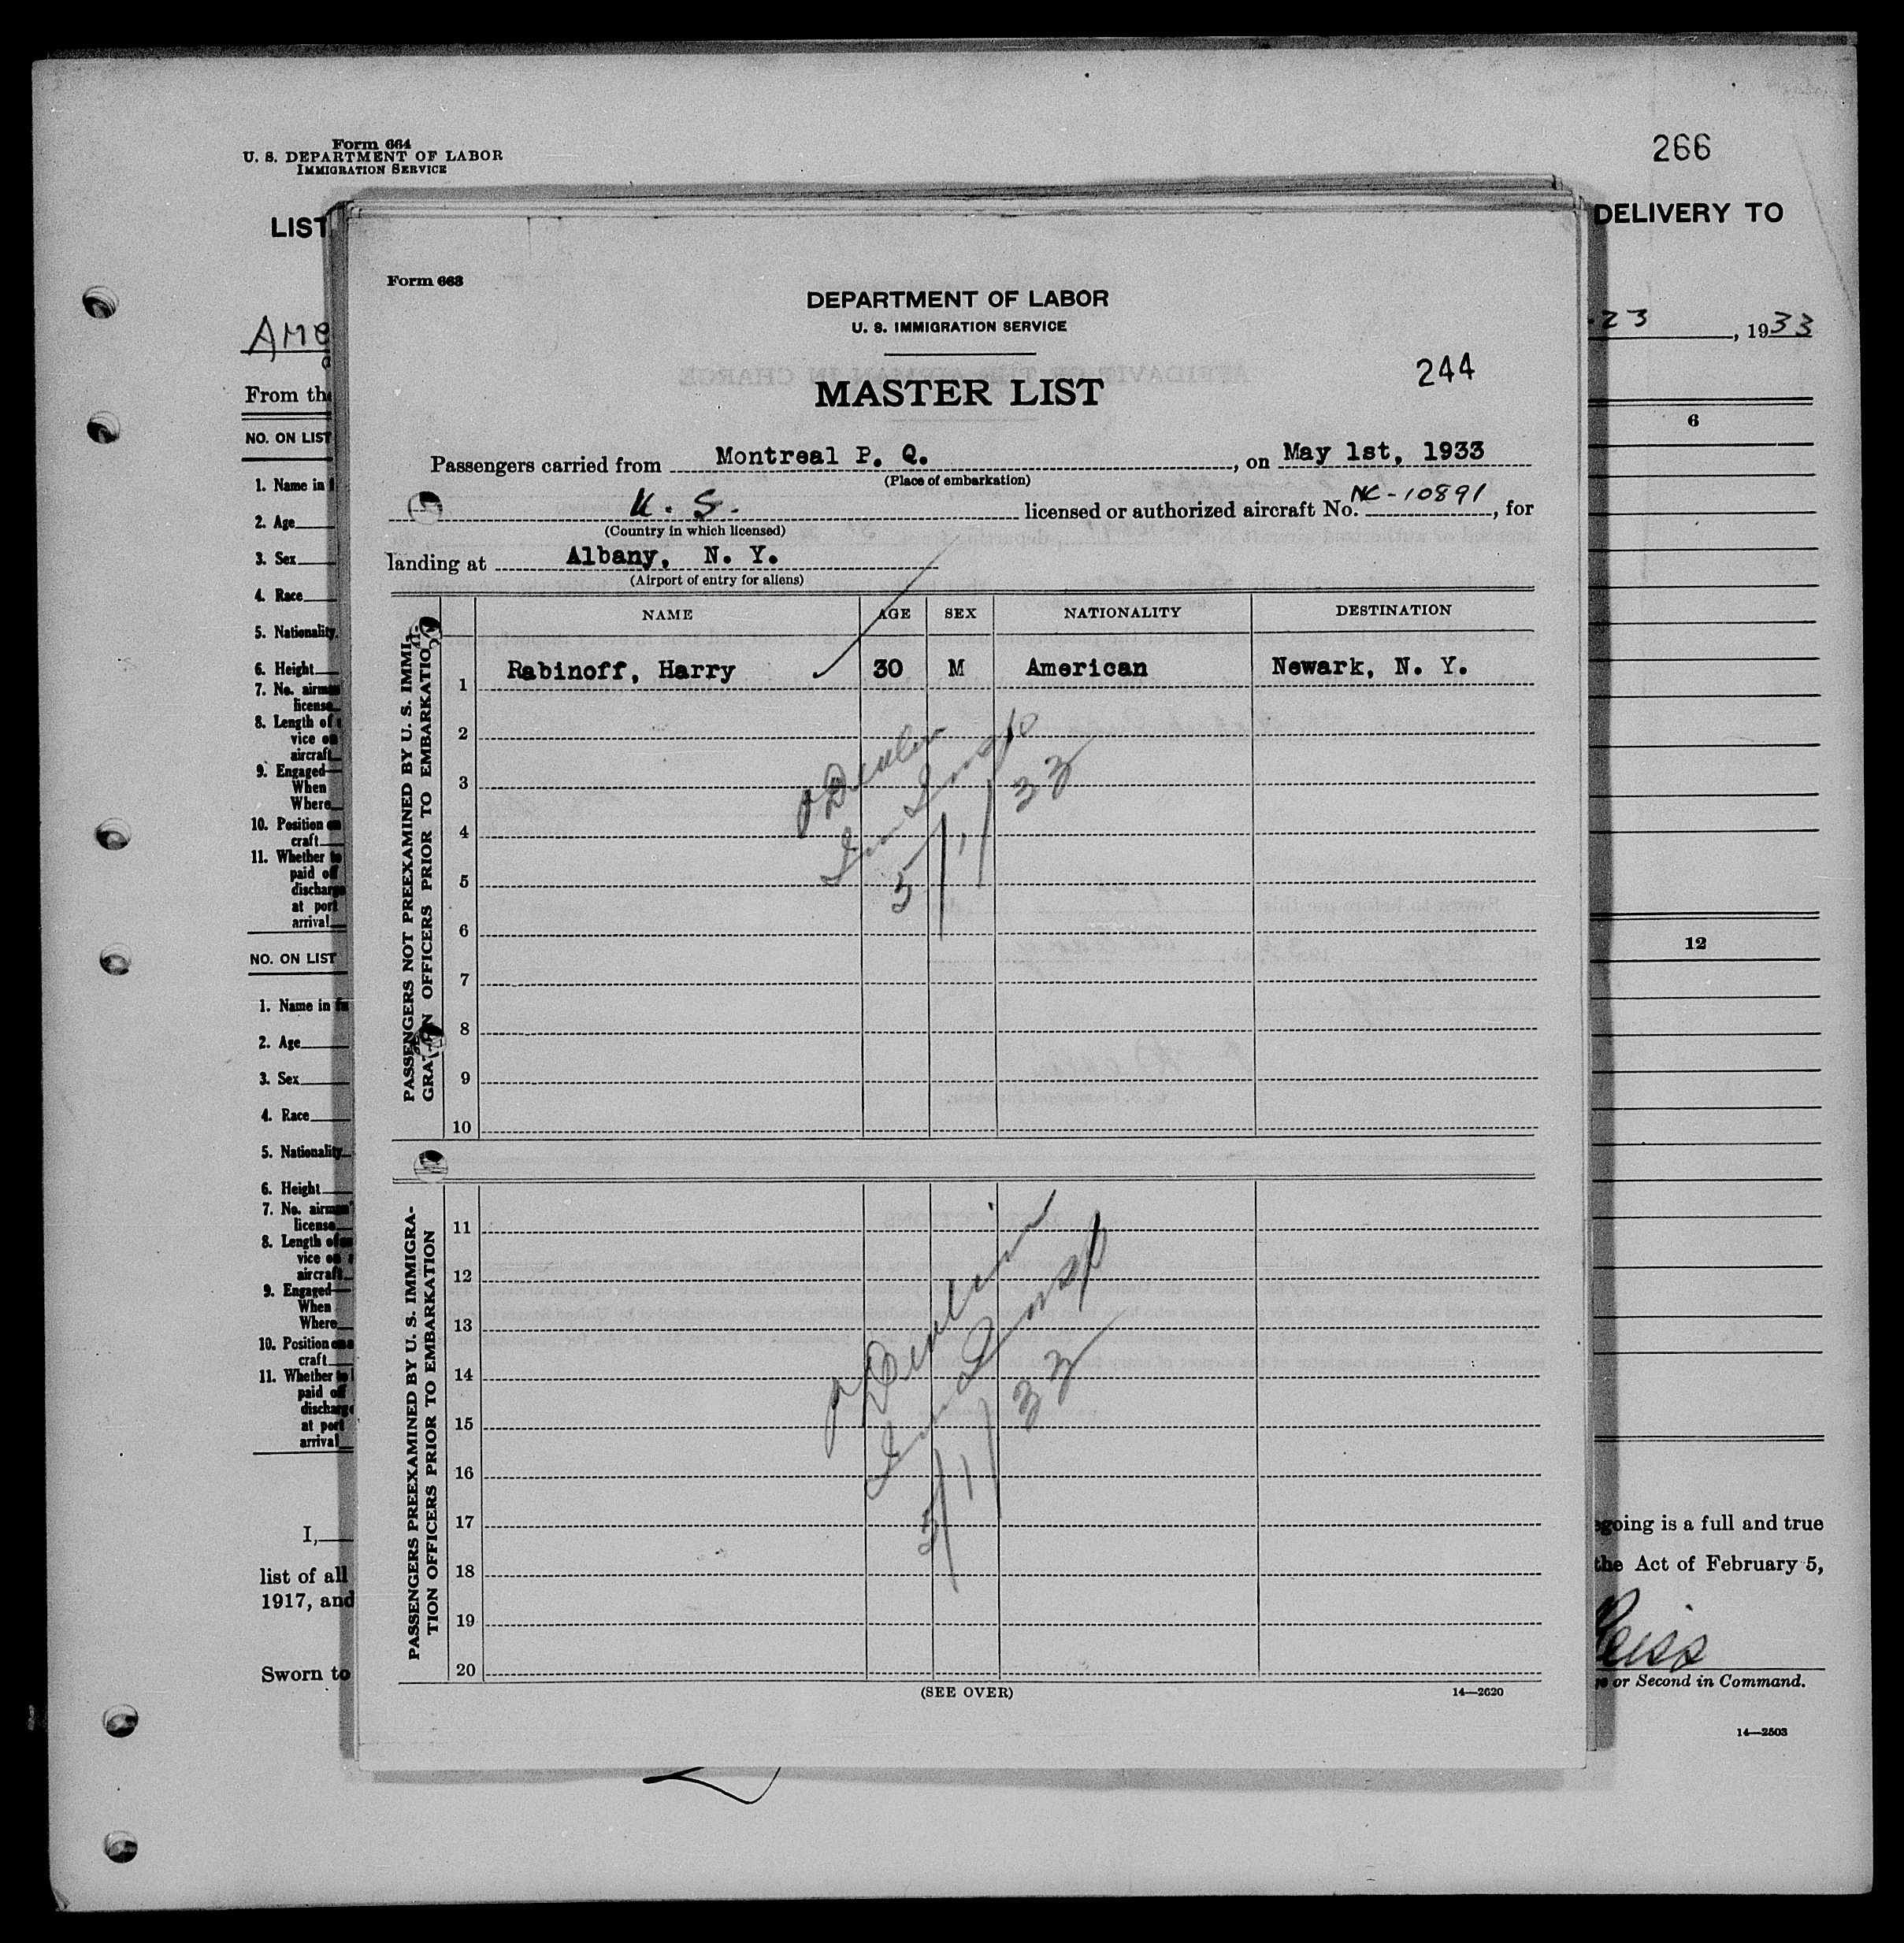 Form 664
U. S. DEPARTMENT OF LABOR
IMMIGRATION SERVICE
266
LIST
DELIVERY TO
23, 1933
From the
6
NO. ON LIST
1. Name in
2. Age
3. Sex
4. Race
5. Nationality
6. Height
7. No. airman
license
8. Length of
vice on
aircraft
9. Engaged—
When
Where
10. Position on
craft
11. Whether to
paid off
discharge
at port
arrival
12
NO. ON LIST
1. Name in fu
2. Age
3. Sex
4. Race
5. Nationality
6. Height
7. No. airman'
license
8. Length of
vice on
aircraft
9. Engaged—
When
Where
10. Position on
craft
11. Whether to
paid off
discharge
at port
arrival
I,
going is a full and true
list of all
the Act of February 5,
1917, and
Sworn to
or Second in Command.
14—2503
Form 663
DEPARTMENT OF LABOR
U. S. IMMIGRATION SERVICE
244
MASTER LIST
Passengers carried from Montreal P. Q., on May 1st, 1933
(Place of embarkation)
U. S. licensed or authorized aircraft No. NC-10891, for
(Country in which licensed)
landing at Albany, N. Y.
(Airport of entry for aliens)
NAME AGE SEX NATIONALITY DESTINATION
PASSENGERS NOT PREEXAMINED BY U. S. IMMI-
GRATION OFFICERS PRIOR TO EMBARKATION
1 Rabinoff, Harry 30 M American Newark, N. Y.
2
3
4
5
6
7
8
9
10
Devlin
Imm Insp
5/1/33
PASSENGERS PREEXAMINED BY U. S. IMMIGRA-
TION OFFICERS PRIOR TO EMBARKATION
11
12
13
14
15
16
17
18
19
20
Devlin
Imm Insp
5/1/33
(SEE OVER)
14—2620